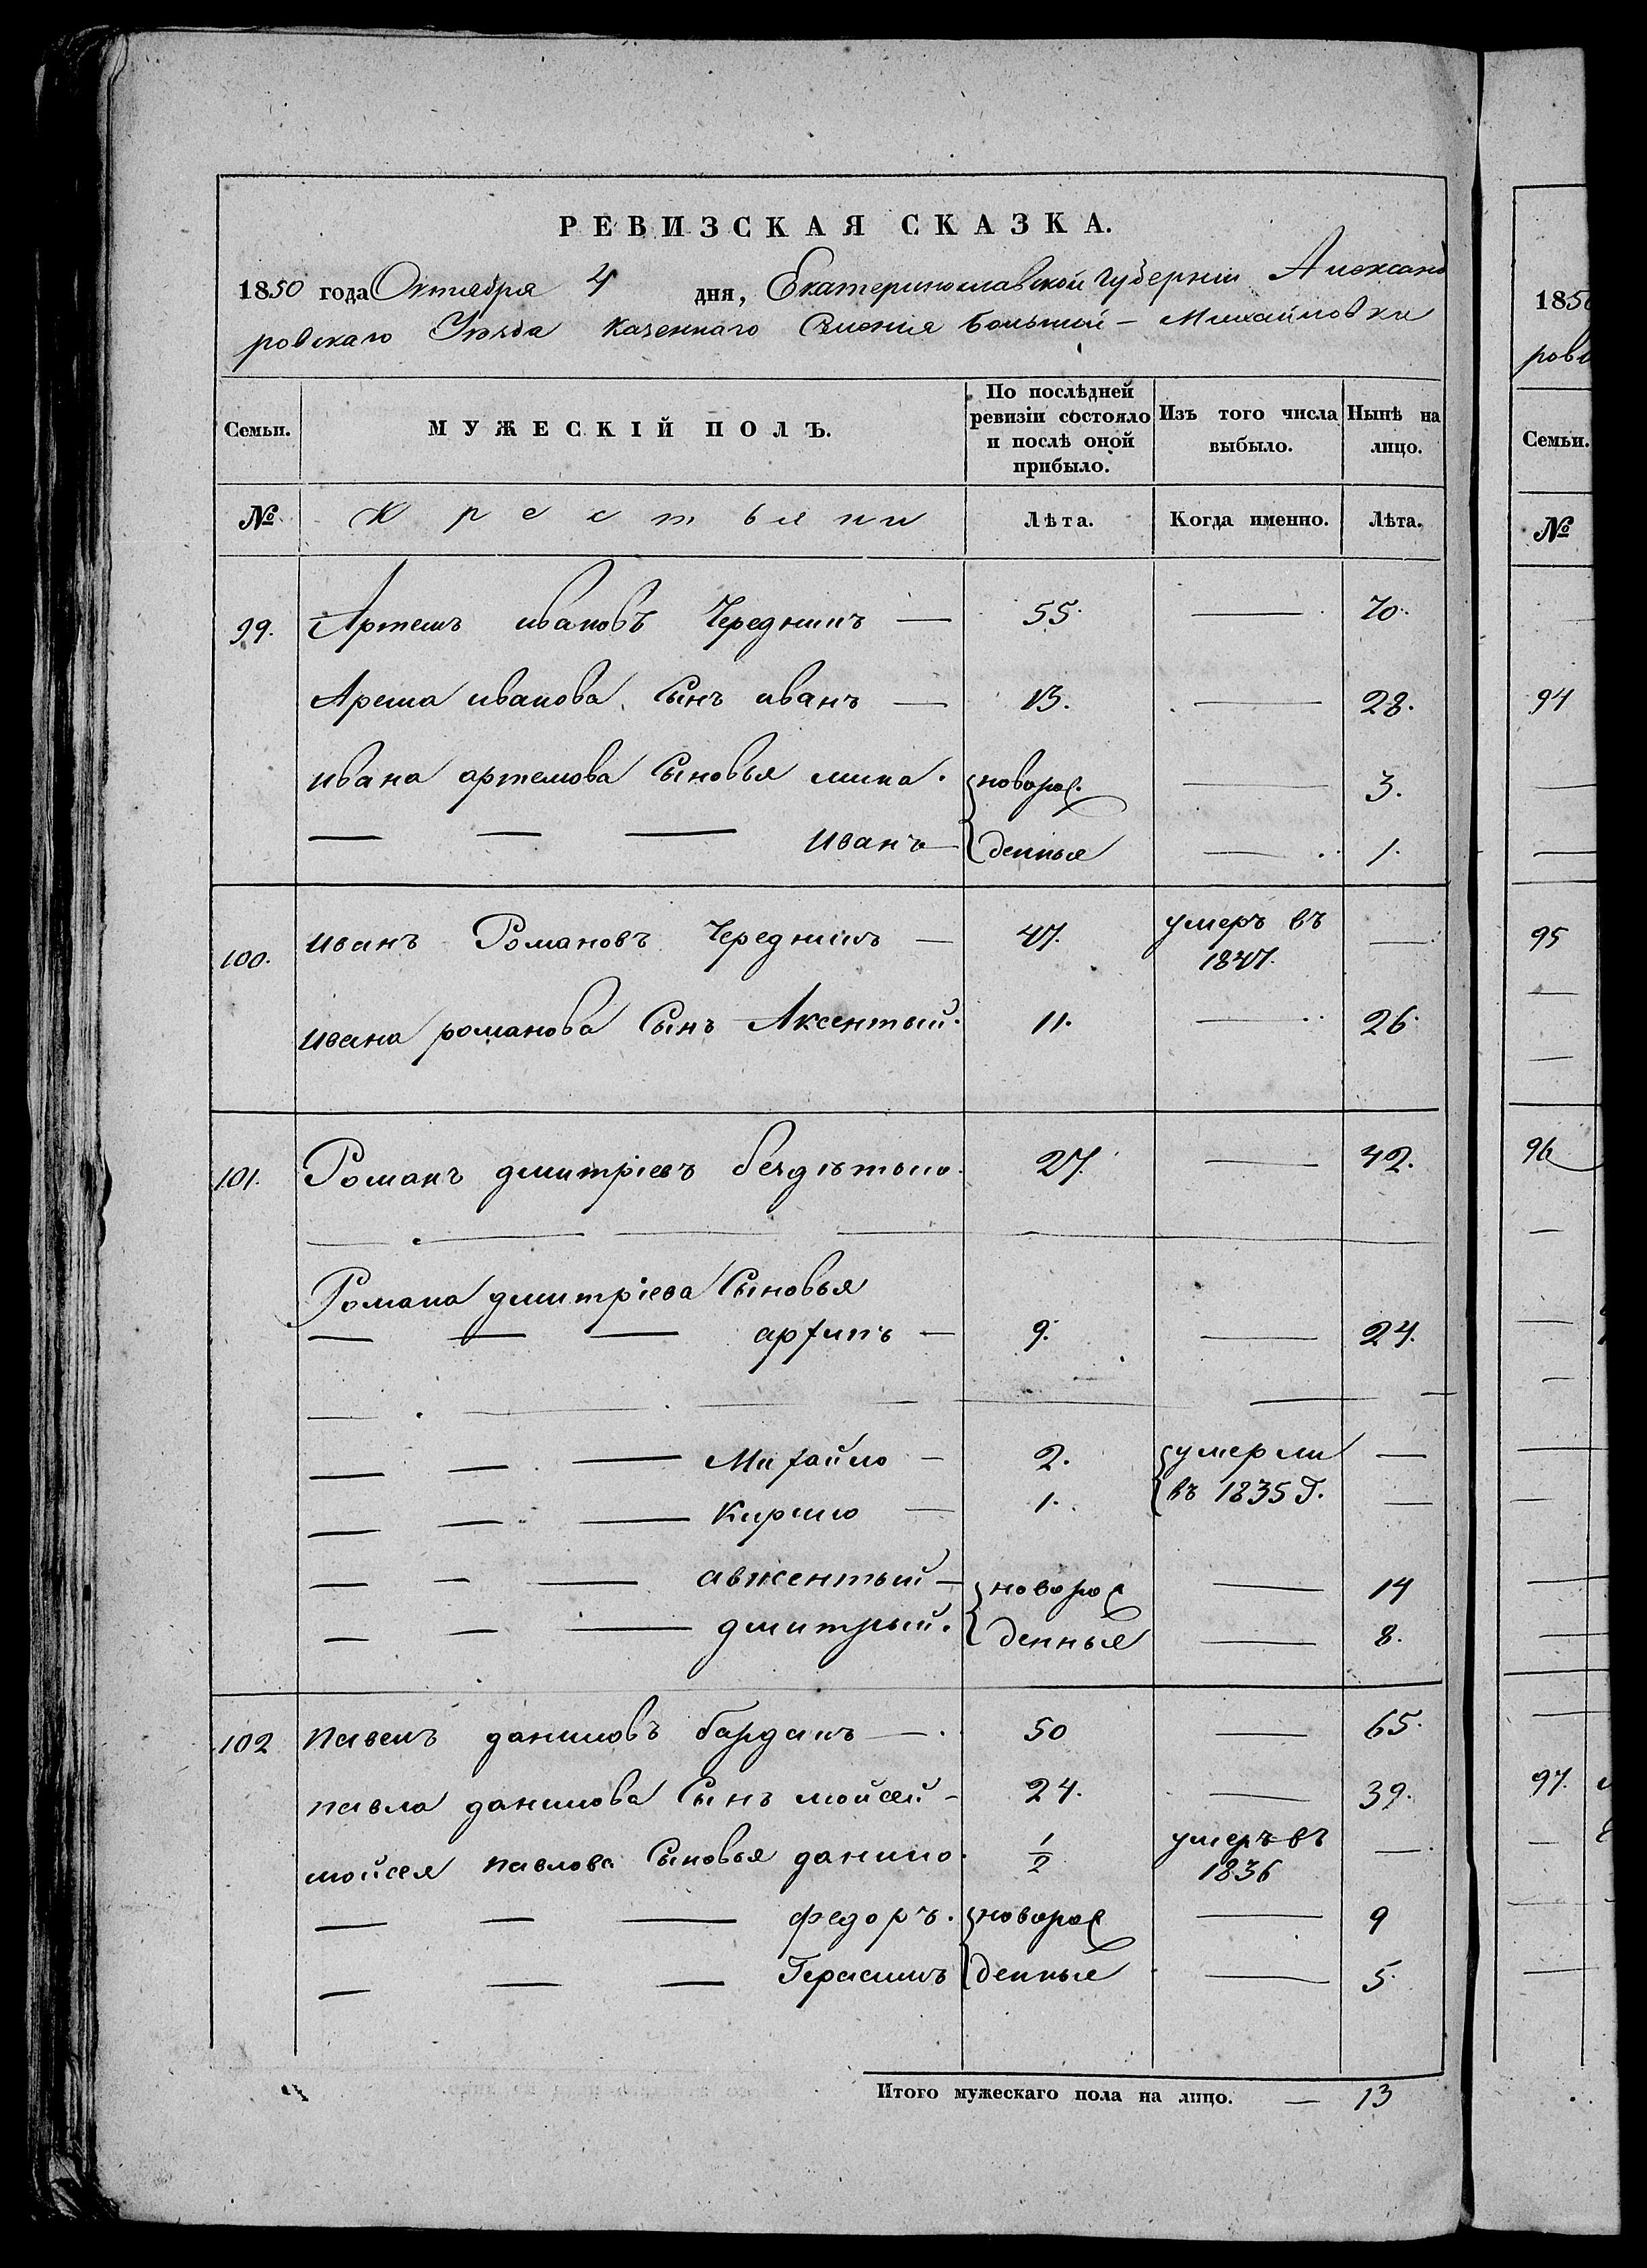 РЕВИЗСКАЯ СКАЗКА.
1850 года Октября 4 дня, Екатеринославской губерніи Александ
ровскаго Уѣзда Казеннаго Сѣленія Большой-Михайловки
Семьи. МУЖЕСКІЙ ПОЛЪ. По послѣдней ревизіи состояло и послѣ оной прибыло. Изъ того числа выбыло. Нынѣ на лицо.
№ Крестьяни Лѣта. Когда именно. Лѣта.
99. Артемъ ивановъ Чередникъ — 55. — 70.
Артема иванова Сынъ иванъ — 13. — 28.
ивана артемова Сыновья мина. новорож — 3.
— — — иванъ — денные — 1.
100. иванъ Романовъ Чередникъ — 47. умеръ въ 1847. —
ивана романова Сынъ Аксентый. 11. — 26.
101. Романъ дмитріевъ бездѣтько. 27. — 42.
Романа дмитріева Сыновья
— — — архипъ — 9. — 24.
— — — Михайло — 2. умерли —
— — — Кирило — 1. въ 1835 г. —
— — — авксентый — новорож — 14
— — — дмитрый. денные — 8.
102 павелъ даниловъ барданъ — 50 — 65.
павла данилова Сынъ мойсей — 24. — 39.
мойсея павлова Сыновья данило. 1/2 умеръ въ 1836 —
— — — федоръ. новорож — 9
— — — Герасимъ денные — 5.
Итого мужескаго пола на лицо. — 13
1850
рова
Семьи.
№
94
95
96
97.